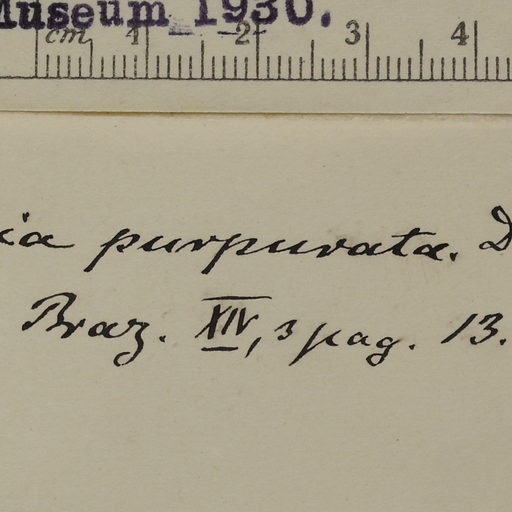 Museum 1930.
cm 1 2 3 4
ia purpurata. D
Braz. XIV, 3 pag. 13.